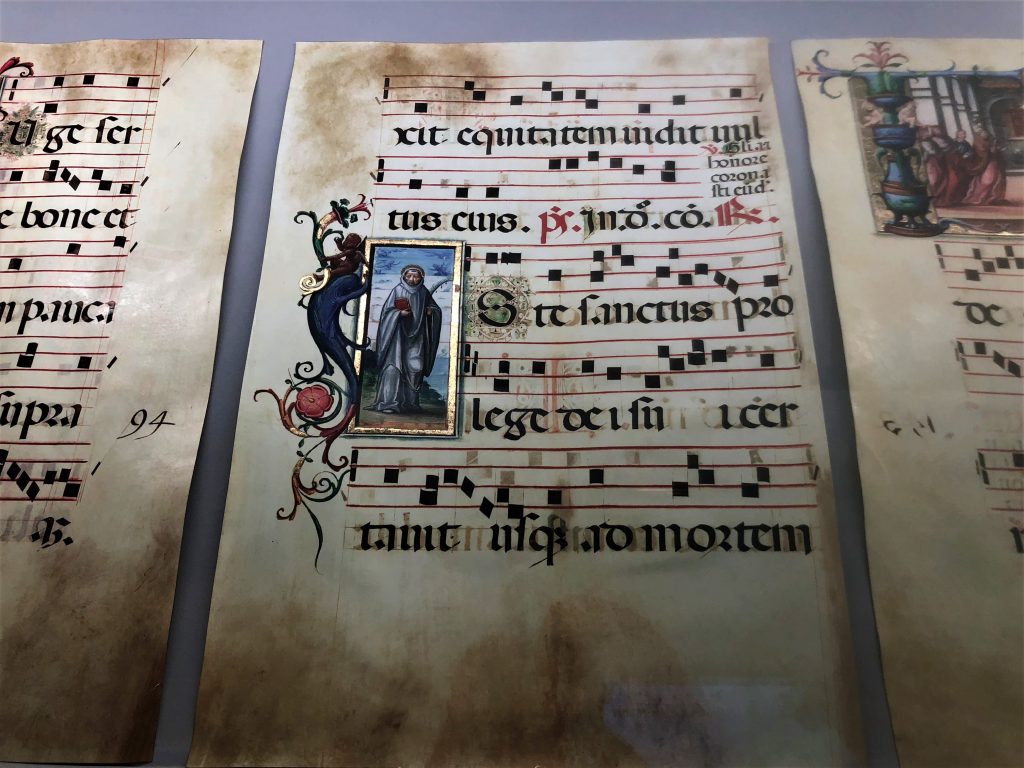 uge ser
e bone et
n pauca
supra
94
xit equitatem uidit uul
honore
corona
sti
tus eius.
Ste sanctus pro
lege dei su i cer
tauit usqꝫ ad mortem
de